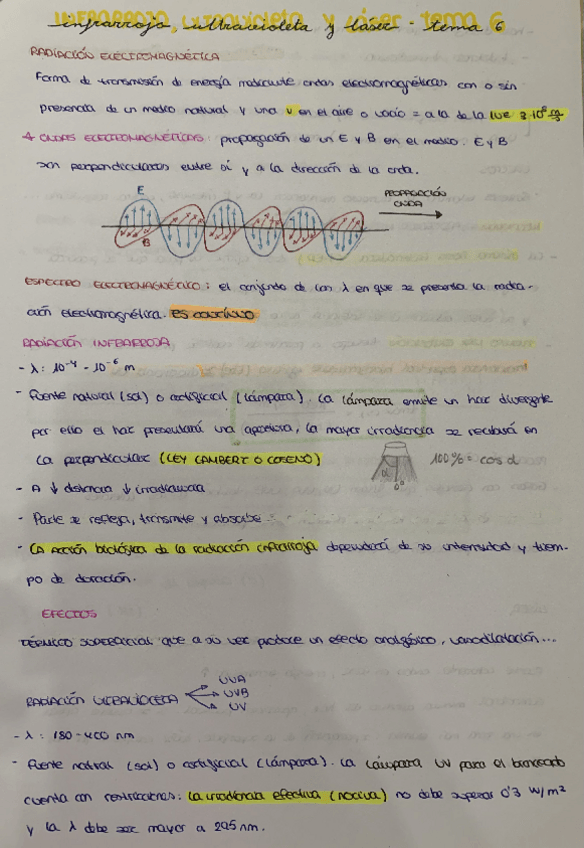 INFRARROJO, ULTRAVIOLETA Y LÁSER - tema 6
infrarrojo, ultravioleta y láser - tema 6
RADIACIÓN ELECTROMAGNÉTICA
Forma de transmisión de energía mediante ondas electromagnéticas con o sin
presencia de un medio natural y una v en el aire o vacío = a la de la luz 3·10⁸ m/s
ONDAS ELECTROMAGNÉTICAS: propagación de un E y B en el medio: E y B
son perpendiculares entre sí y a la dirección de la onda.
E
B
PROPAGACIÓN
ONDA
ESPECTRO ELECTROMAGNÉTICO: el conjunto de λ en que se presenta la radia-
ción electromagnética. ES CONTINUO
RADIACIÓN INFRARROJA
- λ: 10⁻⁴ - 10⁻⁶ m
- Fuente natural (sol) o artificial (lámpara). La lámpara emite un haz divergente
por ello el haz presentará una apertura, la mayor irradiancia se recibirá en
la perpendicular (LEY LAMBERT O COSENO)
α
0°
100% = cos α
- A ↓ distancia ↓ irradiancia
- Parte se refleja, transmite y absorbe
- La acción biológica de la radiación infrarroja dependerá de su intensidad y tiem-
po de duración.
EFECTOS
TÉRMICO SUPERFICIAL que a su vez produce un efecto analgésico, vasodilatación...
RADIACIÓN ULTRAVIOLETA
UVA
UVB
UV
- λ: 180-400 nm
- Fuente natural (sol) o artificial (lámpara). La lámpara UV para el bronceado
cuenta con restricciones: la irradiancia efectiva (nociva) no debe superar 0'3 W/m²
y la λ debe ser mayor a 295 nm.